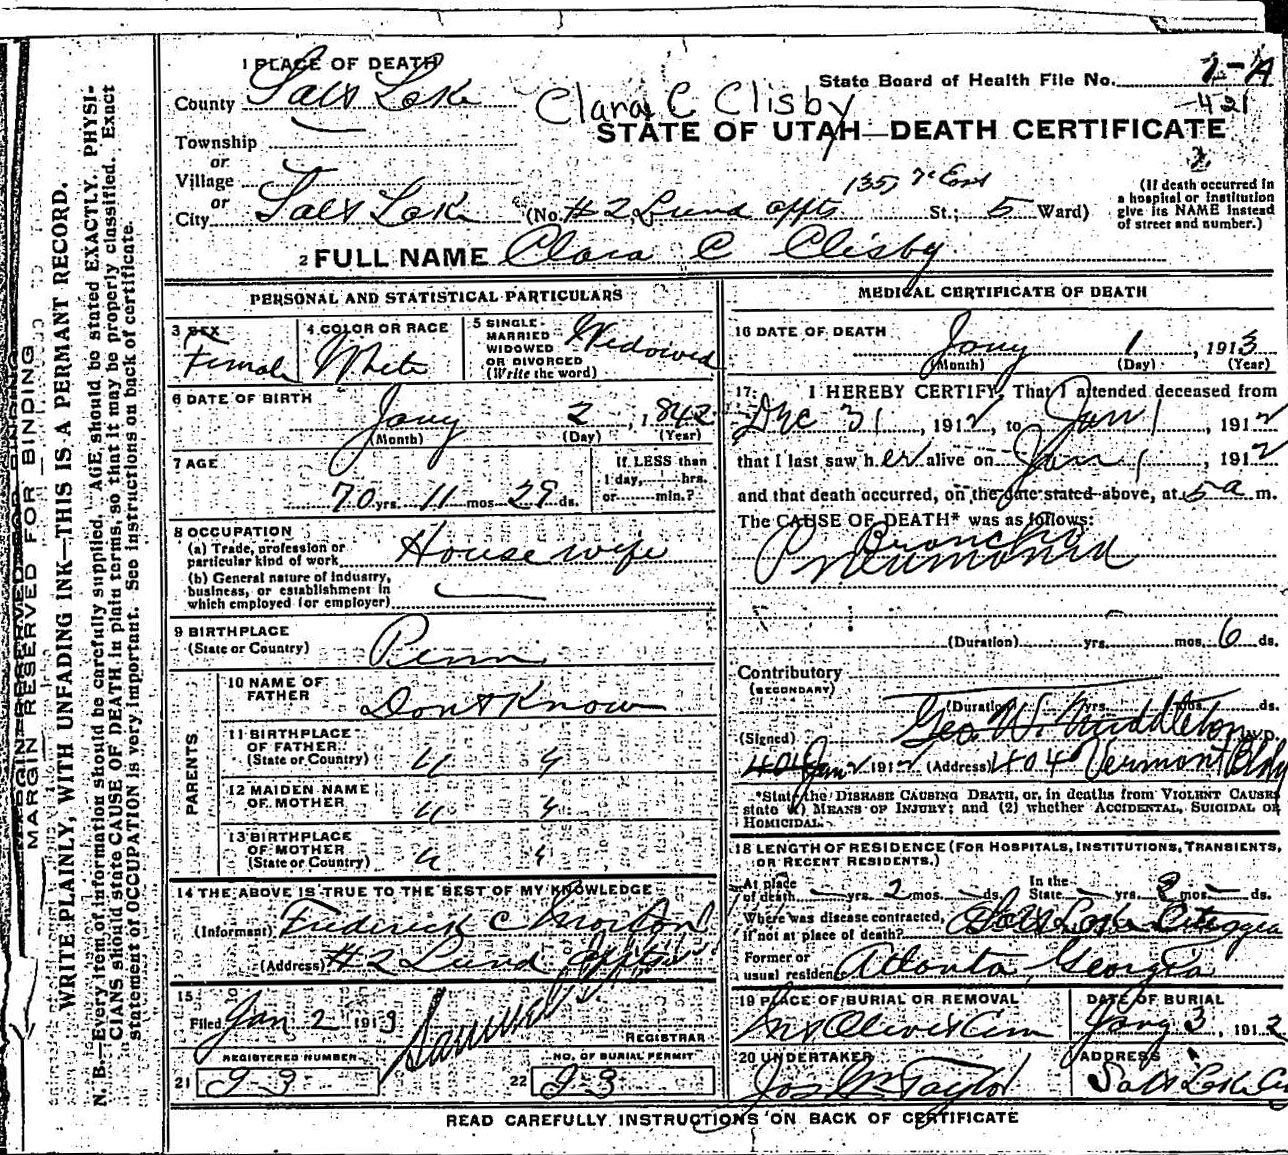 MARGIN RESERVED FOR BINDING
WRITE PLAINLY, WITH UNFADING INK—THIS IS A PERMANT RECORD.
N. B.—Every item of information should be carefully supplied. AGE should be stated EXACTLY. PHYSI-
CIANS should state CAUSE OF DEATH in plain terms, so that it may be properly classified. Exact
statement of OCCUPATION is very important. See instructions on back of certificate.
1 PLACE OF DEATH
State Board of Health File No. 1-A
-421
County Salt Lake
Clara C Clisby
STATE OF UTAH—DEATH CERTIFICATE
Township
or
Village
or
City Salt Lake (No. #2 Lund appts 135 7th East St.; 5 Ward)
(If death occurred in
a hospital or institution
give its NAME instead
of street and number.)
2 FULL NAME Clara C Clisby
PERSONAL AND STATISTICAL PARTICULARS
3 SEX
Female
4 COLOR OR RACE
White
5 SINGLE
MARRIED
WIDOWED
OR DIVORCED
(Write the word)
Widowed
6 DATE OF BIRTH
Jany 2, 1842
(Month) (Day) (Year)
7 AGE
70 yrs. 11 mos. 29 ds.
If LESS than
1 day, hrs.
or min.?
8 OCCUPATION
(a) Trade, profession or
particular kind of work Housewife
(b) General nature of industry,
business, or establishment in
which employed (or employer)
9 BIRTHPLACE
(State or Country) Penn
PARENTS
10 NAME OF
FATHER Dont Know
11 BIRTHPLACE
OF FATHER
(State or Country) " "
12 MAIDEN NAME
OF MOTHER " "
13 BIRTHPLACE
OF MOTHER
(State or Country) " "
14 THE ABOVE IS TRUE TO THE BEST OF MY KNOWLEDGE
(Informant) Frederick C
(Address) #2 Lund Appts
15
Filed Jan 2 1913
REGISTRAR
REGISTERED NUMBER
21 93
NO. OF BURIAL PERMIT
22 93
MEDICAL CERTIFICATE OF DEATH
16 DATE OF DEATH
Jany 1, 1913
(Month) (Day) (Year)
17 I HEREBY CERTIFY, That I attended deceased from
Dec 31, 1912, to Jan 1, 1912
that I last saw her alive on Jan 1, 1912
and that death occurred, on the date stated above, at 5 a m.
The CAUSE OF DEATH* was as follows:
Broncho
Pneumonia
(Duration) yrs. mos. 6 ds.
Contributory
(SECONDARY)
(Duration) yrs. mos. ds.
(Signed) Geo. W. Middleton M.D.
Jan 2 1912 (Address) 404 Vermont Bldg
*State the DISEASE CAUSING DEATH, or, in deaths from VIOLENT CAUSES
state (1) MEANS OF INJURY; and (2) whether ACCIDENTAL, SUICIDAL OR
HOMICIDAL.
18 LENGTH OF RESIDENCE (FOR HOSPITALS, INSTITUTIONS, TRANSIENTS,
OR RECENT RESIDENTS.)
At place
of death yrs. 2 mos. ds.
In the
State yrs. 2 mos. ds.
Where was disease contracted,
if not at place of death? Salt Lake
Former or
usual residence Atlanta Georgia
19 PLACE OF BURIAL OR REMOVAL
Mt Olivet Cem
DATE OF BURIAL
Jany 3, 1912
20 UNDERTAKER
Jos Wm Taylor
ADDRESS
Salt Lake City
READ CAREFULLY INSTRUCTIONS ON BACK OF CERTIFICATE